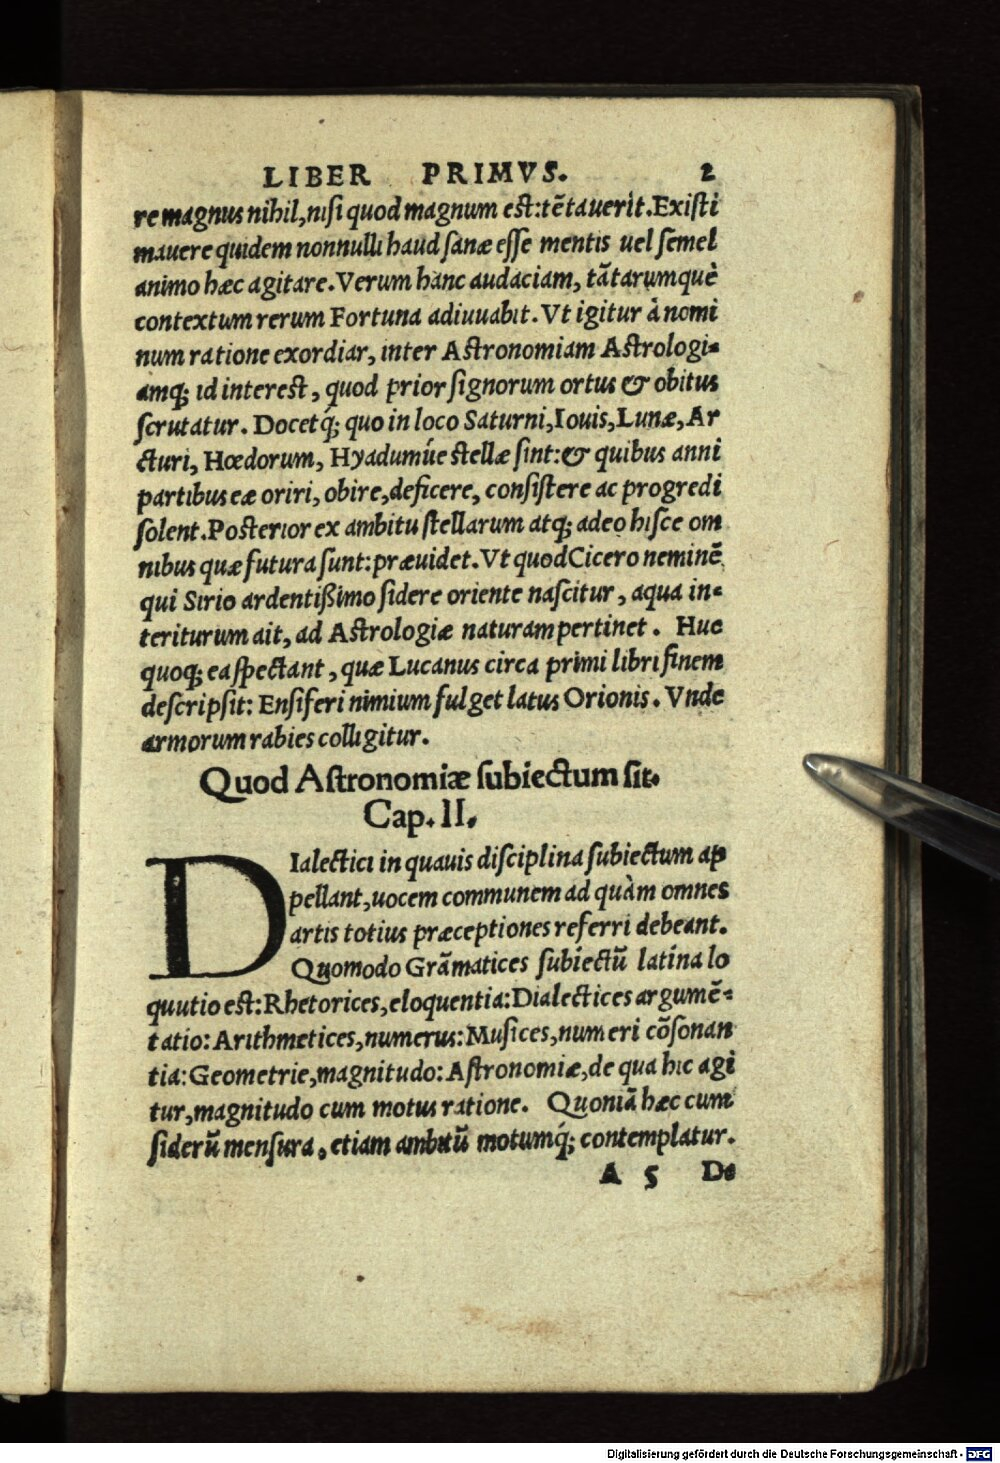 LIBER PRIMVS. 2
re magnus nihil, nisi quod magnum est: tẽtauerit. Existi
mauere quidem nonnulli haud sanæ esse mentis uel semel
animo hæc agitare. Verum hanc audaciam, tãtarumquè
contextum rerum Fortuna adiuuabit. Vt igitur à nomi
num ratione exordiar, inter Astronomiam Astrologi-
amq; id interest, quod prior signorum ortus & obitus
scrutatur. Docetq́; quo in loco Saturni, Iouis, Lunæ, Ar
cturi, Hœdorum, Hyadumúe stellæ sint: & quibus anni
partibus eæ oriri, obire, deficere, consistere ac progredi
solent. Posterior ex ambitu stellarum atq; adeo hisce om
nibus quæ futura sunt: præuidet. Vt quod Cicero neminẽ,
qui Sirio ardentißimo sidere oriente nascitur, aqua in-
teriturum ait, ad Astrologiæ naturam pertinet. Huc
quoq; ea spectant, quæ Lucanus circa primi libri finem
descripsit: Ensiferi nimium fulget latus Orionis. Vnde
armorum rabies colligitur.
Quod Astronomiæ subiectum sit.
Cap. II.
DIalectici in quauis disciplina subiectum ap
pellant, uocem communem ad quàm omnes
artis totius præceptiones referri debeant.
Quomodo Grãmatices subiectũ latina lo
quutio est: Rhetorices, eloquentia: Dialectices argumẽ-
tatio: Arithmetices, numerus: Musices, numeri cõsonan
tia: Geometrie, magnitudo: Astronomiæ, de qua hic agi
tur, magnitudo cum motus ratione. Quoniã hæc cum
siderũ mensura, etiam ambitũ motumq́; contemplatur.
A 5 De
Digitalisierung gefördert durch die Deutsche Forschungsgemeinschaft - DFG